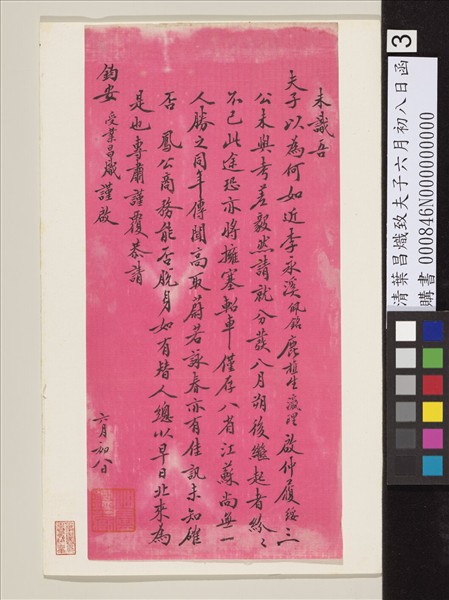 未識吾
夫子以為何如近李永溪佩銘龐植生瀓理啟仲履綏三
公未與考差毅然請就分發八月朔後繼起者紛々
不已此途恐亦將擁塞軺車僅存八省江蘇尚無一
人勝之同年傳聞高取蔚若詠春亦有佳訊未知確
否 鳳公商務能否脫身如有替人總以早日北來為
是也專肅謹覆恭請
鈞安 受業昌熾謹啟
六月初八日
3
清葉昌熾致夫子六月初八日函
購書 000846N000000000